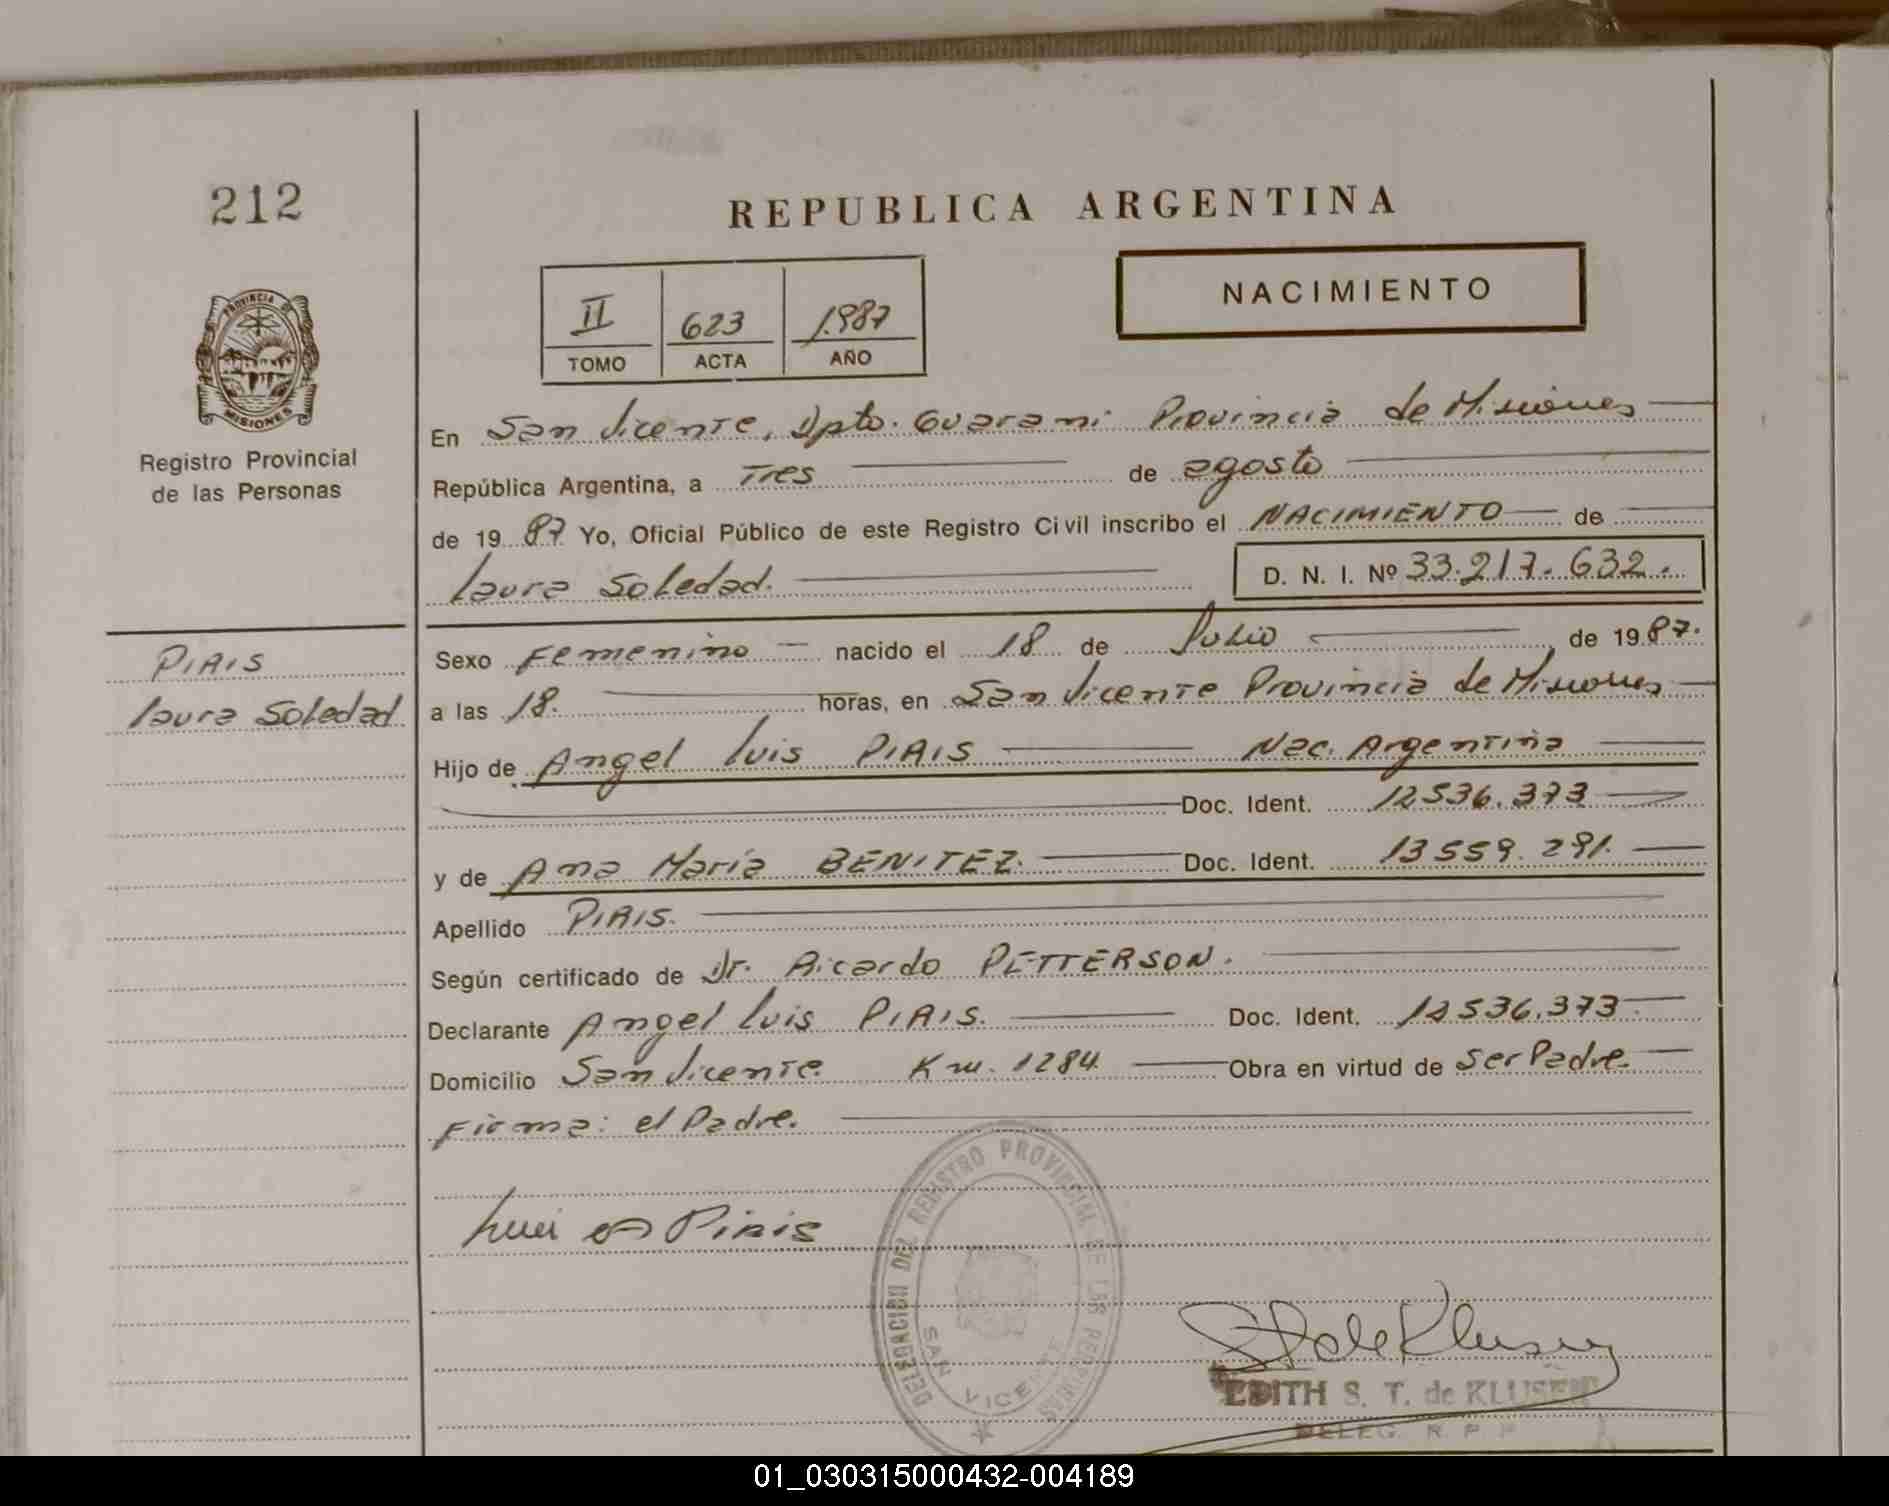 212
REPUBLICA ARGENTINA
NACIMIENTO
II 623 1.987
TOMO ACTA AÑO
PROVINCIA DE MISIONES
Registro Provincial
de las Personas
En San Vicente, Dpto. Guaraní Provincia de Misiones
República Argentina, a Tres de agosto
de 19 87 Yo, Oficial Público de este Registro Civil inscribo el NACIMIENTO de
Laura Soledad. D. N. I. Nº 33.217.632.
PIRIS
Laura Soledad
Sexo Femenino nacido el 18 de Julio de 19 87.
a las 18. horas, en San Vicente Provincia de Misiones
Hijo de Angel Luis PIRIS Nac. Argentina
Doc. Ident. 12536.373
y de Ana María BENITEZ. Doc. Ident. 13559.291.
Apellido PIRIS.
Según certificado de Dr. Ricardo PETTERSON.
Declarante Angel Luis PIRIS. Doc. Ident. 12536.373
Domicilio San Vicente Km. 1284 Obra en virtud de Ser Padre.
Firma: el Padre.
Piris
DELEGACION DEL REGISTRO PROVINCIAL DE LAS PERSONAS
SAN VICENTE
EDITH S. T. de KLUSENER
DELEG. R. P. P.
01_030315000432-004189